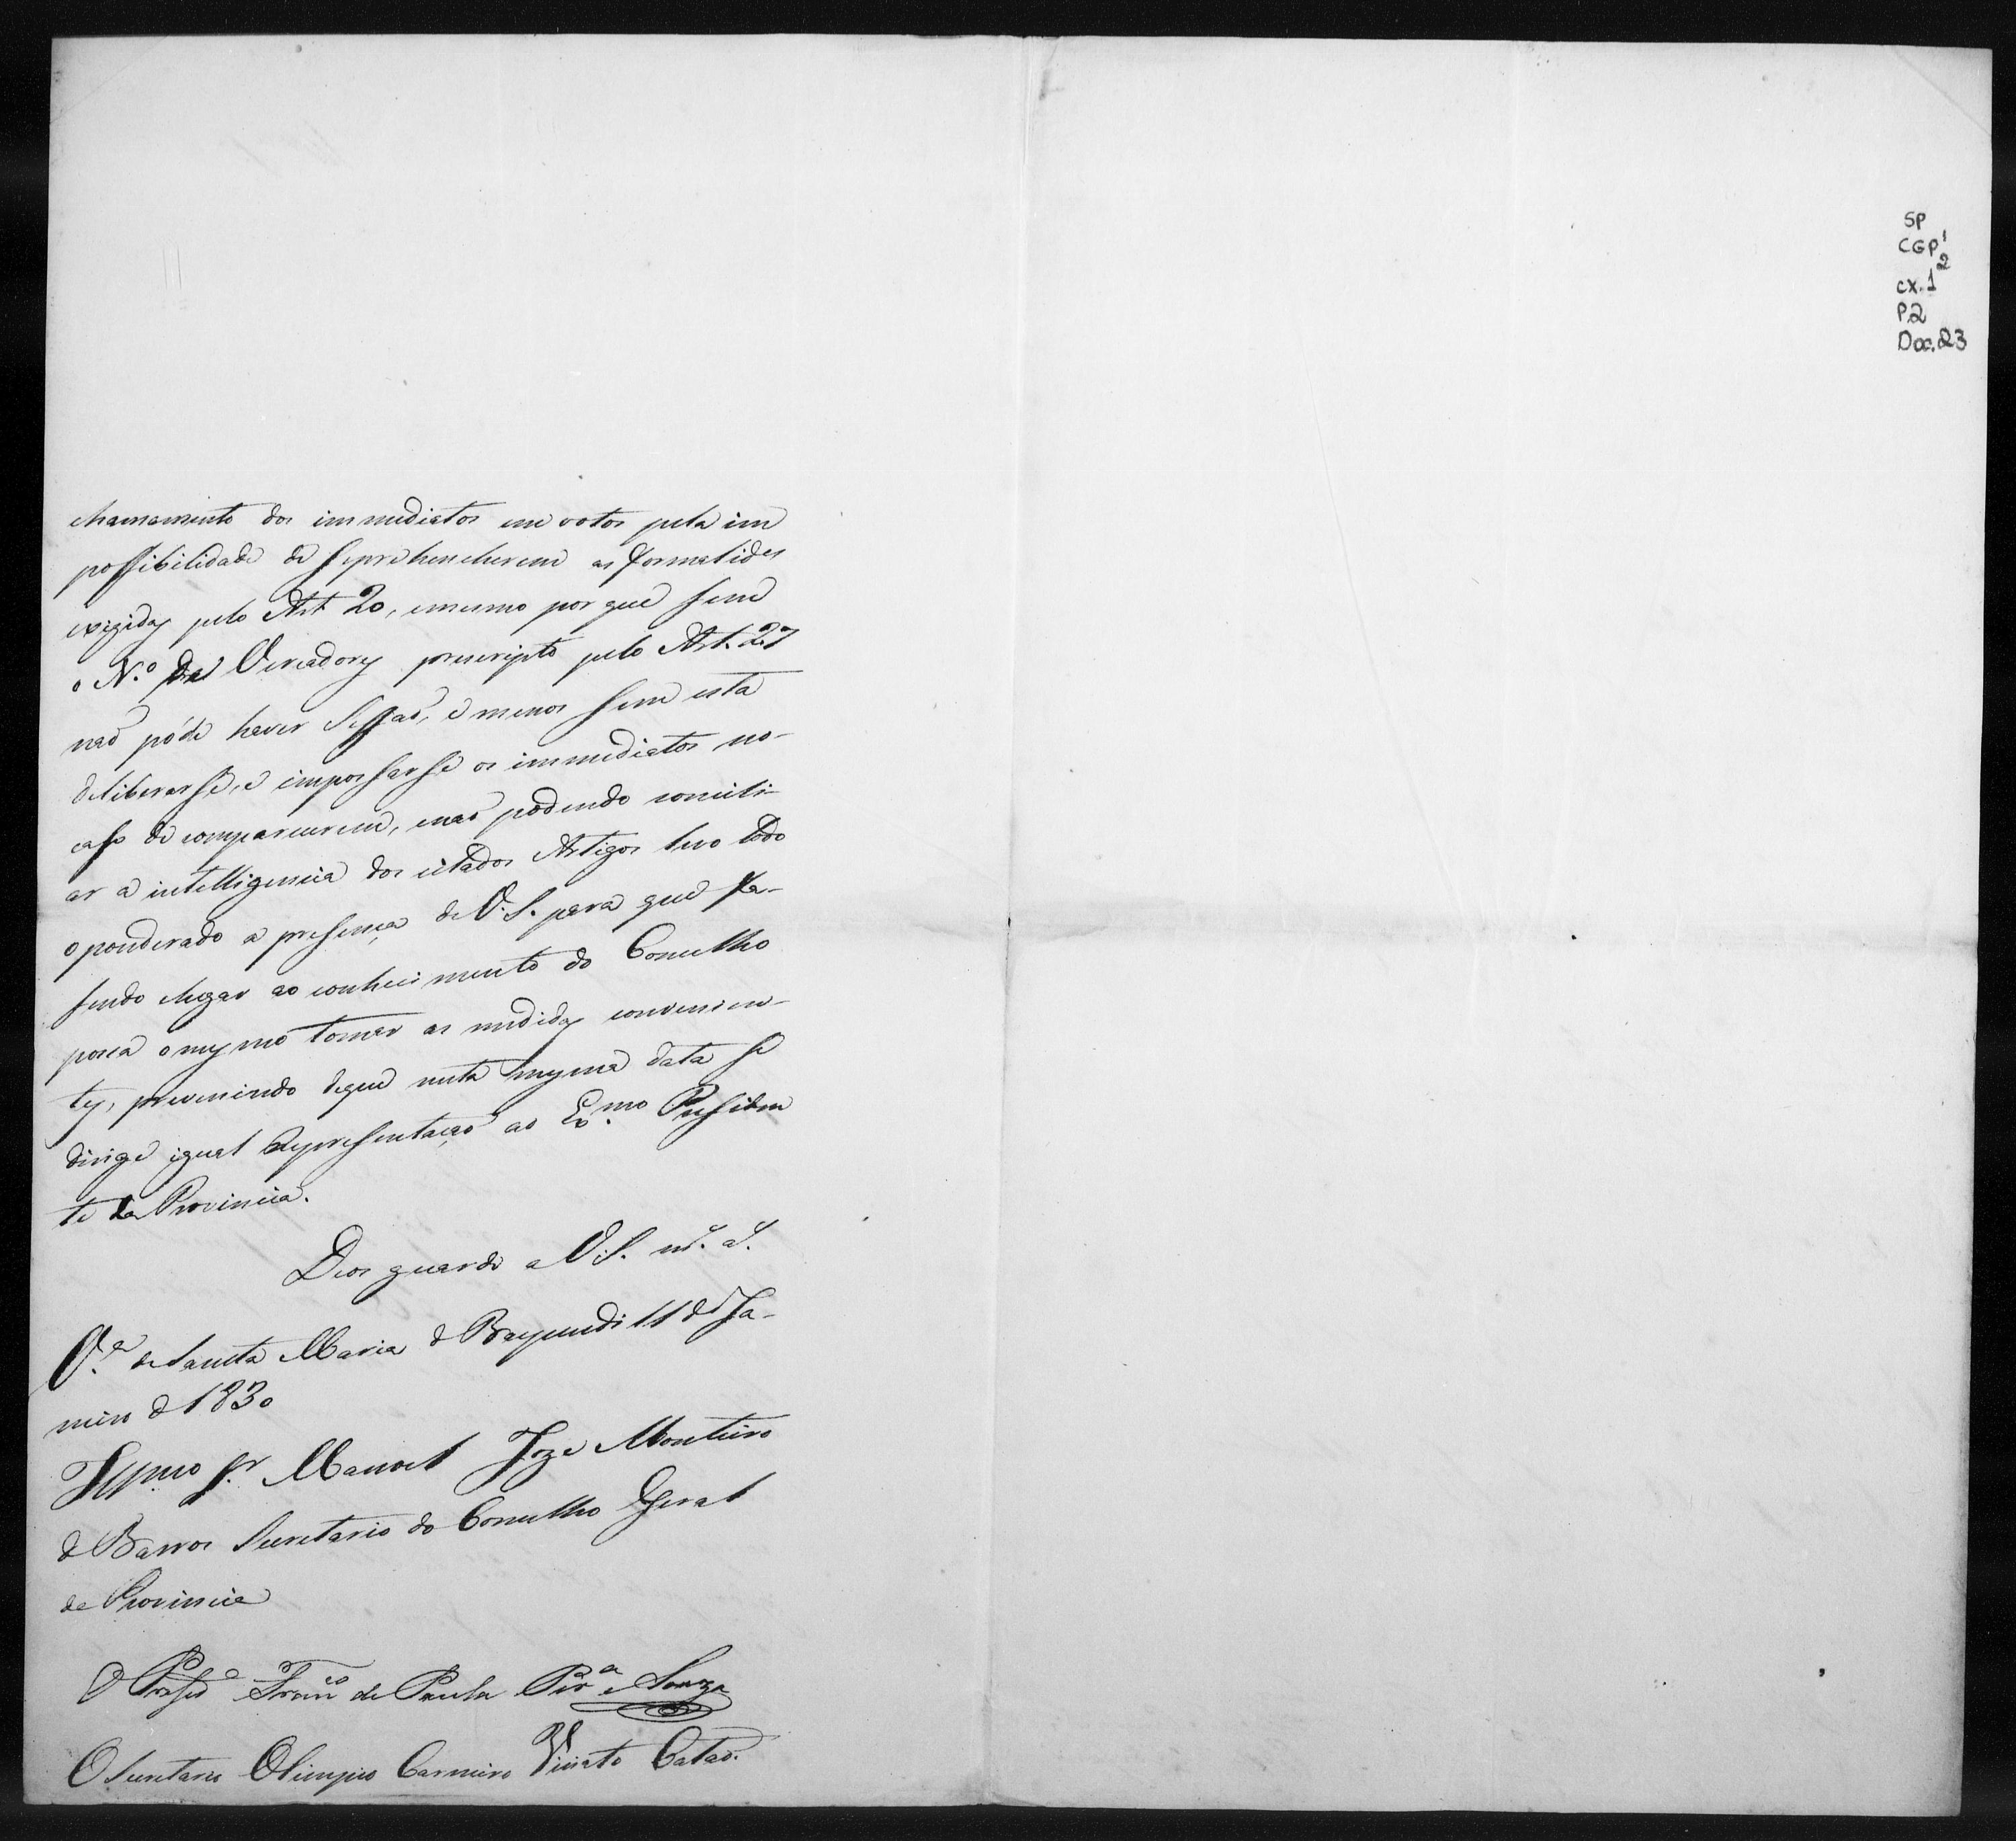 chamamento dos immediatos em votos pela im
possibilidade de seprehencherem as formalides
exigidas pelo Art 20, emesmo por que sem
o N.º de Vereadores prescripto pelo Art. 27
naõ póde haver Sessaõ, e menos sem esta
deliberarse, e imporsarse os immediatos no-
caso de comparecerem, enaõ podendo concili-
ar a intelligencia dos citados Artigos levo todo
oponderado a presença de V. S. para que fa-
sendo chegar ao conhecimento do Concelho
possa omesmo tomar as medidas convenien-
tes, prevenindo deque nesta mesma data se
dirige igual Representaçaõ ao Ex.mo Presiden
te da Provincia.
Deos guarde a V. S. m.s a.s
V.a de Santa Maria de Baependi 11 de Ja-
neiro de 1830
Illmo Sr. Manoel Joze Monteiro
de Barros Secretario do Concelho Geral
da Provincia
O Preside Franco de Paula Pera e Souza
O Secretario Olimpio Carneiro Viriato Cataõ.
SP
CGP1
cx. 1 2
P2
Doc. 23